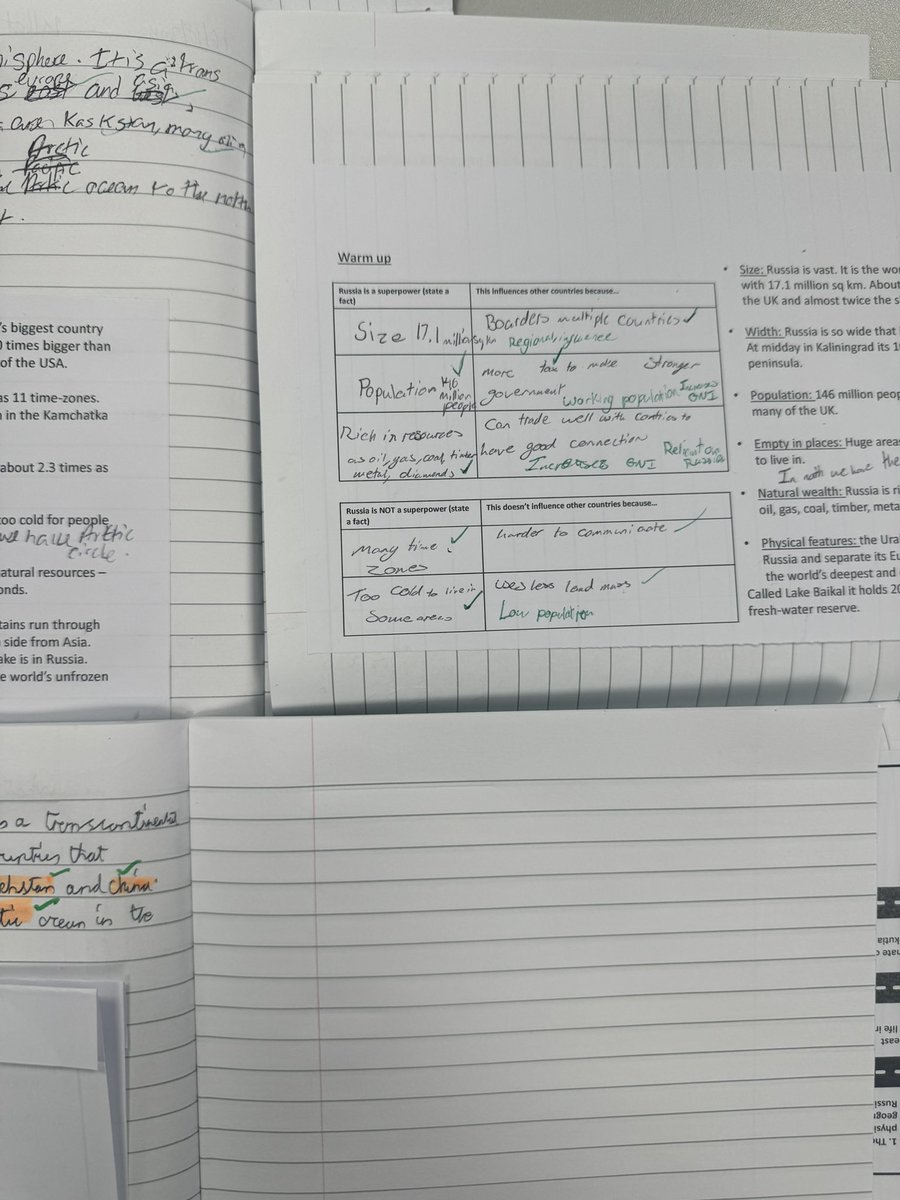 isphere. It is a trans
europe asia
s east and
s are Kaskstan, mong
Arctic
ocean to the north
Warm up
Russia is a superpower (state a fact) This influences other countries because...
Size 17.1 million sq km Boarders multiple countries
Regional influence
Population 146 million people more tax to make stronger
government Working population Increases GNI
Rich in resources Can trade well with contries to
as oil, gas, coal, timber have good connection
metal, diamonds Increases GNI Relient on Russia
Russia is NOT a superpower (state a fact) This doesn't influence other countries because...
Many time harder to communicate
zones
Too cold to live in Uses less land mass
Some areas Low population
• Size: Russia is vast. It is the wo
with 17.1 million sq km. About
the UK and almost twice the s
• Width: Russia is so wide that
At midday in Kaliningrad its 1
peninsula.
• Population: 146 million peop
many of the UK.
• Empty in places: Huge areas
to live in.
In north we have the
• Natural wealth: Russia is ri
oil, gas, coal, timber, meta
• Physical features: the Ura
Russia and separate its Eu
the world's deepest and
Called Lake Baikal it holds 20
fresh-water reserve.
's biggest country
0 times bigger than
of the USA.
as 11 time-zones.
n in the Kamchatka
about 2.3 times as
too cold for people
we have Arctic
circle.
atural resources –
onds.
tains run through
side from Asia.
ake is in Russia.
e world's unfrozen
s a transcontinental
untries that
ehstan and china
tic ocean in the
kutia
nate c
life ir
east
Russi
geog
physi
1. Th